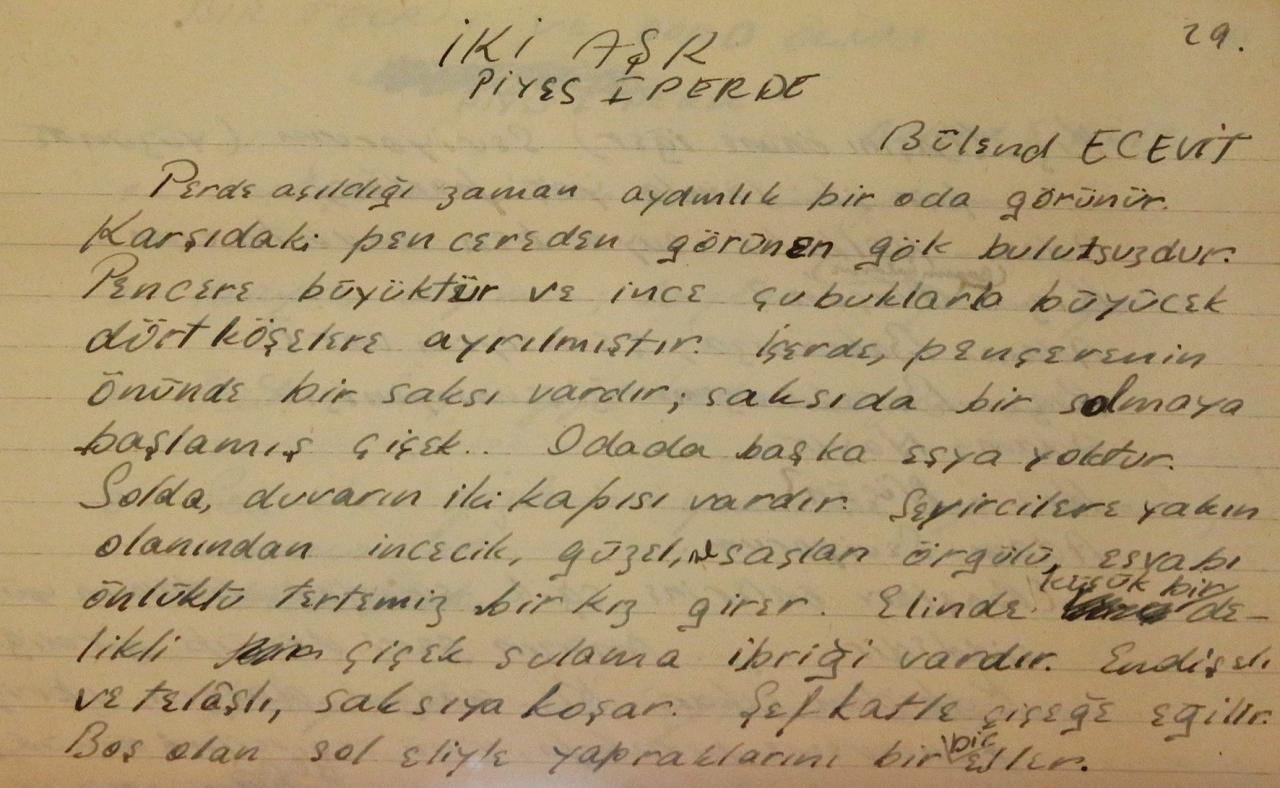 29.
İKİ AŞK
PİYES I PERDE
Bülend ECEVİT
Perde açıldığı zaman aydınlık bir oda görünür.
Karşıdaki pencereden görünen gök bulutsuzdur.
Pencere büyüktür ve ince çubuklarla büyücek
dört köşelere ayrılmıştır. İçerde, pençerenin
önünde bir saksı vardır; saksıda bir solmaya
başlamış çiçek.. Odada başka eşya yoktur.
Solda, duvarın iki kapısı vardır. Seyircilere yakın
olanından incecik, güzel, saçları örgülü, esvabı
önlüklü tertemiz bir kız girer. Elinde küçük bir de-
likli çiçek sulama ibriği vardır. Endişeli
ve telâşlı, saksıya koşar. Şefkatle çiçeğe eğilir.
Boş olan sol eliyle yapraklarını bir bir eller.